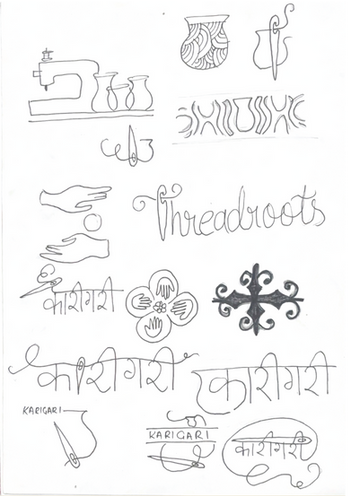 Threadroots
कारीगरी
कारीगरी
कारीगरी
KARIGARI
KARIGARI
कारीगरी